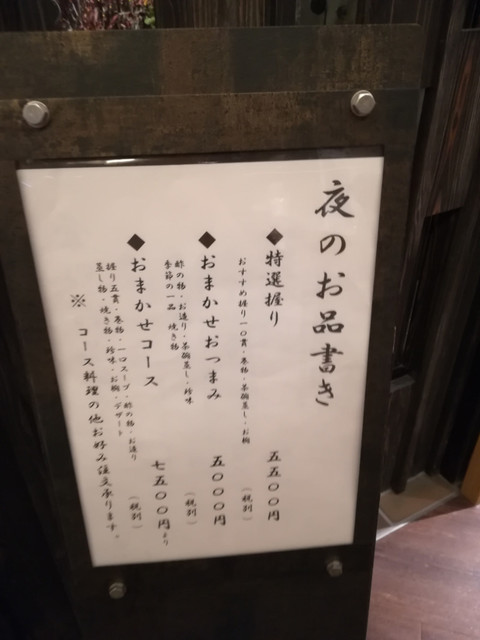 夜のお品書き
◆特選握り
おすすめ握り一〇貫・巻物・茶碗蒸し・お椀
五五〇〇円
（税別）
◆おまかせおつまみ
酢の物・お造り・茶碗蒸し・珍味
季節の一品 焼き物
五〇〇〇円
（税別）
◆おまかせコース
握り五貫・巻物・一口スープ・酢の物・お造り
蒸し物・焼き物・珍味・お椀・デザート
七五〇〇円より
（税別）
※ コース料理の他お好み注文承ります。